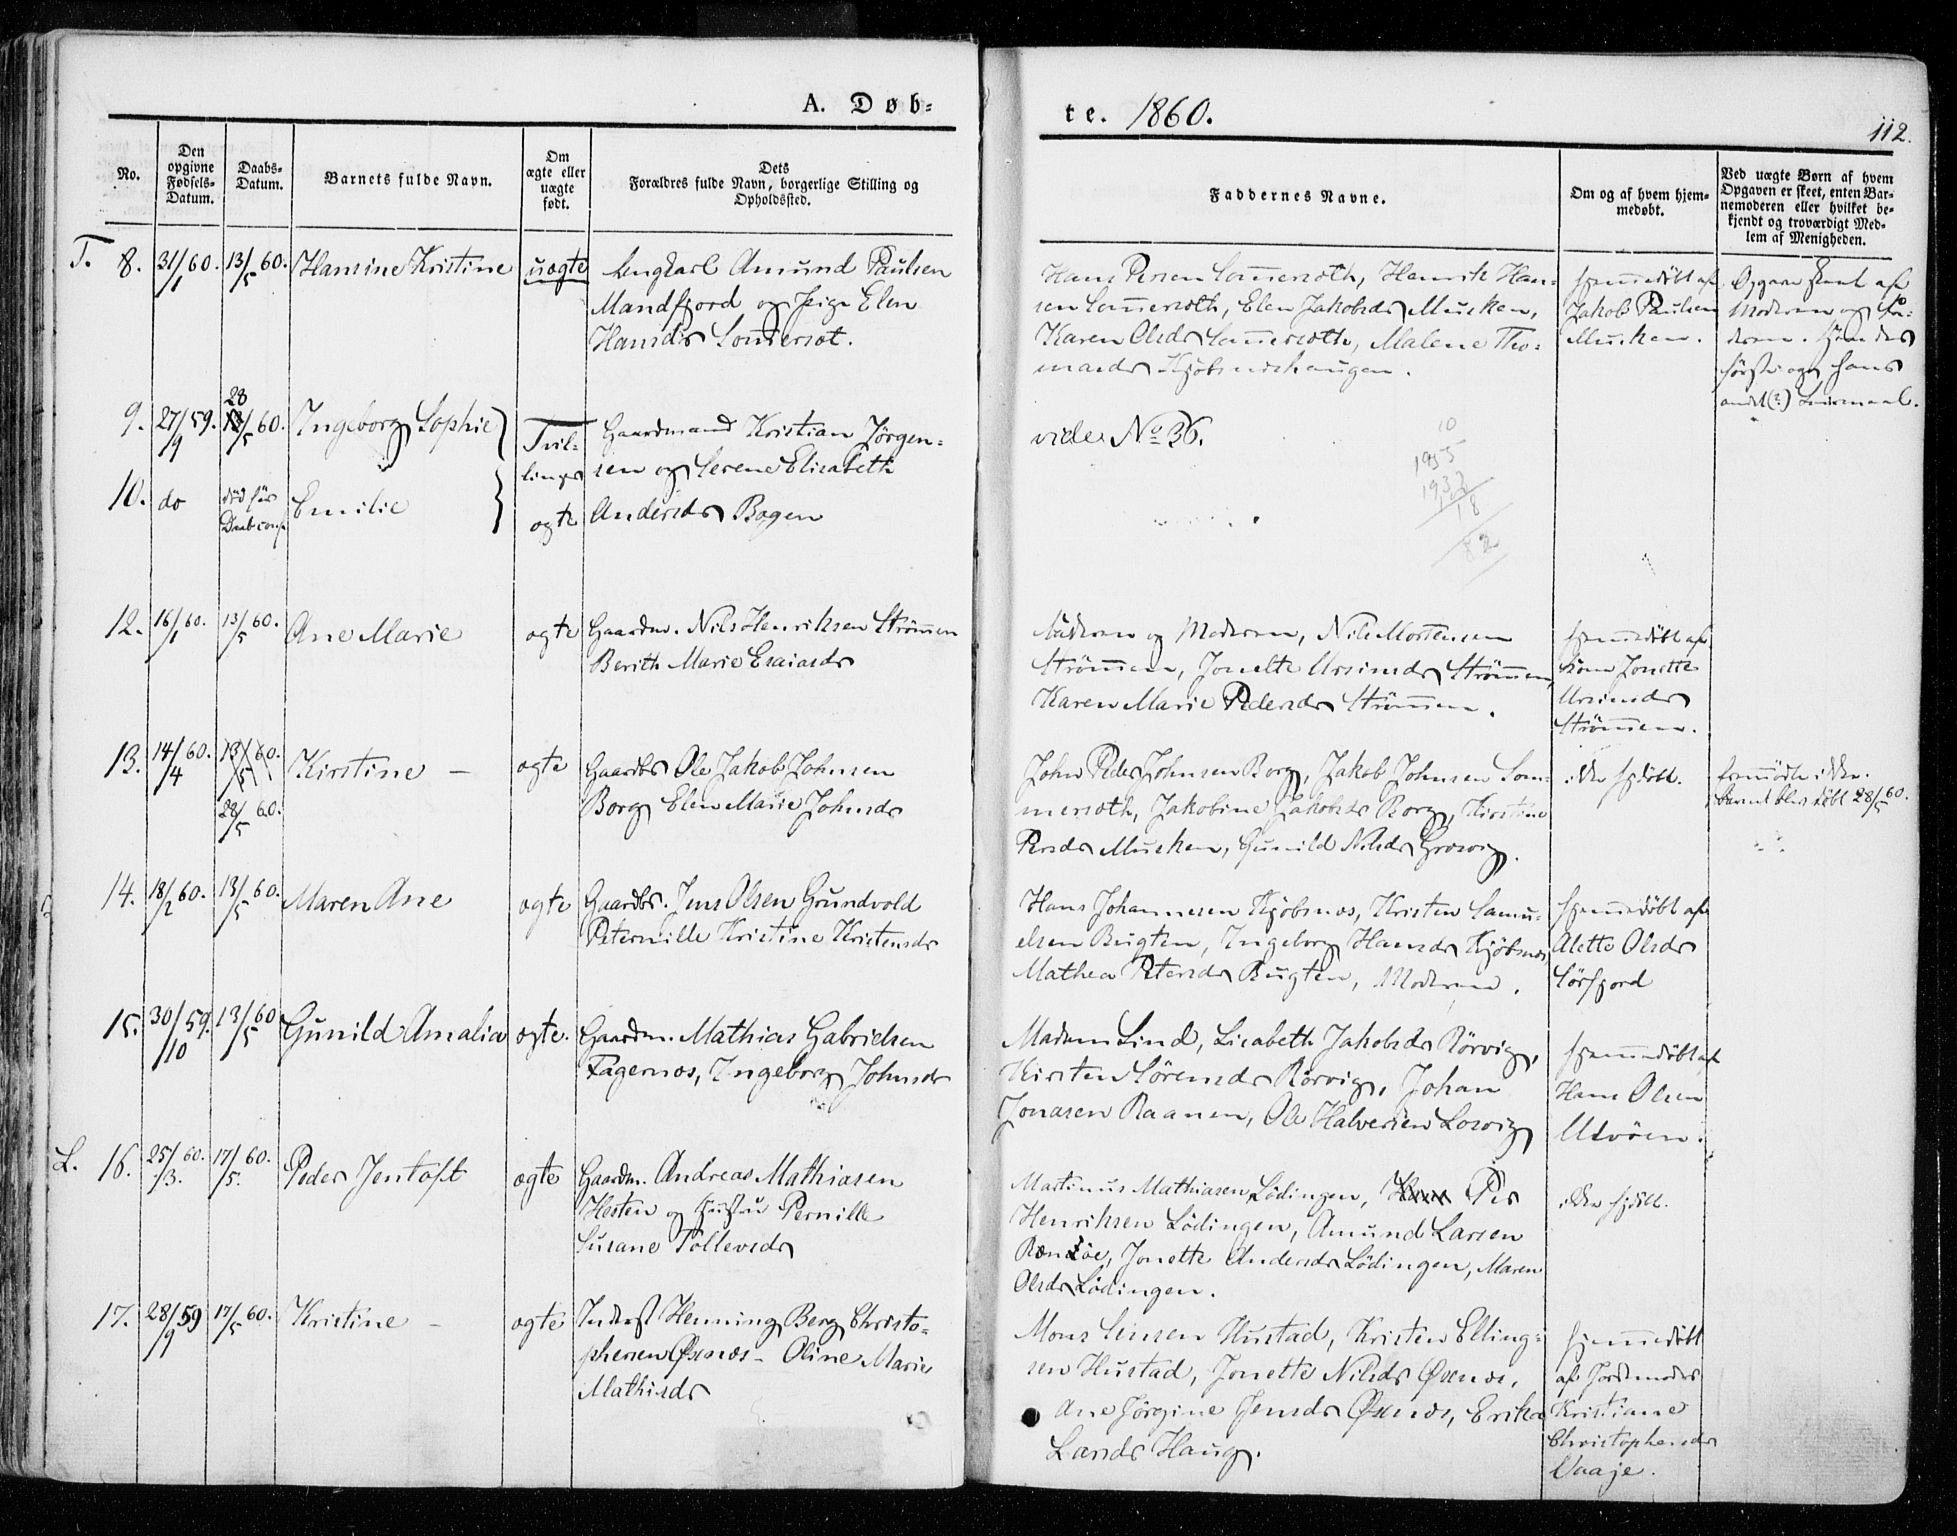 A. Døb=
te. 1860.
112.
No.
Den opgivne Fødsels-Datum.
Daabs-Datum.
Barnets fulde Navn.
Om ægte eller uægte født.
Dets
Forældres fulde Navn, borgerlige Stilling og
Opholdssted.
Faddernes Navne.
Om og af hvem hjem-
medøbt.
Ved uægte Børn af hvem
Opgaven er skeet, enten Bar-
nemoderen eller hvilket be-
kjendt og troværdigt Med-
lem af Menigheden.
T. 8. 31/1 60. 13/5 60. Hansine Kristine uægte
Ungkarl Amund Paulsen
Mandfjord og pige Elen
Hansdr Somersæt.
Hans Persen Somersæth, Henrik Han-
sen Somersæth, Elen Jakobsdr Musken,
Karen Olsdr Somersæth, Malene Tho-
masdr Kjøbsneshaugen.
hjemmedøbt af
Jakob Paulsen
Musken.
Opgave skeet af
Moderen og Fa-
deren. hendes
første og hans
andet (?) Leiermaal.
9. 27/9 59. 28/5 60. Ingeborg Sophie
Tvil-
linger
ægte
Gaardmand Kristian Jørgen-
sen og Serene Elisabeth
Andersdr Bogen
vide No 36.
10
1955
1933
18
82
10. do død før Daaben Emilie
12. 16/1 60. 13/5 60. Ane Marie ægte
Gaardm. Nils Henriksen Strømen
Berith Marie Esaiasdr
Faderen og Moderen, Nils Mortensen
Strømen, Jonette Ursinsdr Strømen,
Karen Marie Pedersdr Strømen.
hjemmedøbt af
Jonette
Ursinsdr
Strømen.
13. 14/4 60. 13/5 60. 28/5 60. Kirstine – ægte
Gaardbr Ole Jakob Johnsen
Borg, Elen Marie Johnsdr
John Peder Johnsen Borg, Jakob Johnsen Som-
mersæth, Jakobine Jakobsdr Borg, Kirstine
Persdr Musken, Gunild Nilsdr Grovig.
ikke hjdøbt.
fremmødte ikke.
barnet blev døbt 28/5 60.
14. 18/2 60. 13/5 60. Maren Ane ægte
Gaardbr. Jens Olsen Grundvold
Peternille Kristine Kristensdr
Hans Johannesen Kjøbsnæs, Kristen Samu-
elsen Bugten, Ingeborg Hansdr Kjøbsnæs,
Mathea Petersdr Bugten, Moderen.
hjemmedøbt af
Alette Olsdr
Sørfjord
15. 30/10 59. 13/5 60 Gunild Amalia ægte.
Gaardm. Mathias Gabrielsen
Fagernæs, Ingeborg Johnsdr
Madam Lind, Lisabeth Jakobsdr Rørvig,
Kirsten Sørensdr Rørvig, Johan
Jonasen Raanen, Ole Halversen Losvig
hjemmedøbt af
Hans Olsen
L. 16. 25/3. 60. 17/5. 60. Peder Jentoft ægte
Gaardm. Andreas Mathiasen
Hesten og Hustru Pernille
Susane Tollevsdr
Martinus Mathiasen Lødingen, Per
Henriksen Lødingen, Amund Larsen
Jonette Andersdr Lødingen, Maren
Olsdr Lødingen.
ikke hjdøbt.
17. 28/9 59 17/5 60. Kristine – ægte
Inderst Henning Berg Christo-
phersen Øxnæs – Oline Marie
Mathisdr
Mons Hustad, Kristen Elling-
sen Hustad, Jonette Nilsdr Øxnæs,
Ane Jørgine Jensdr Øxnæs, Erika
Larsdr Haug.
hjemmedøbt
af Jordmoder
Kristiane
Christophersdr
Vaaje.